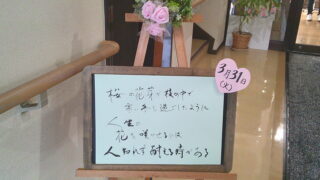 3月31日
(火)
桜の花芽が枝の中で
寒い冬を過ごしたように
人生の
花を咲かせるには
人知れず耐える時がある